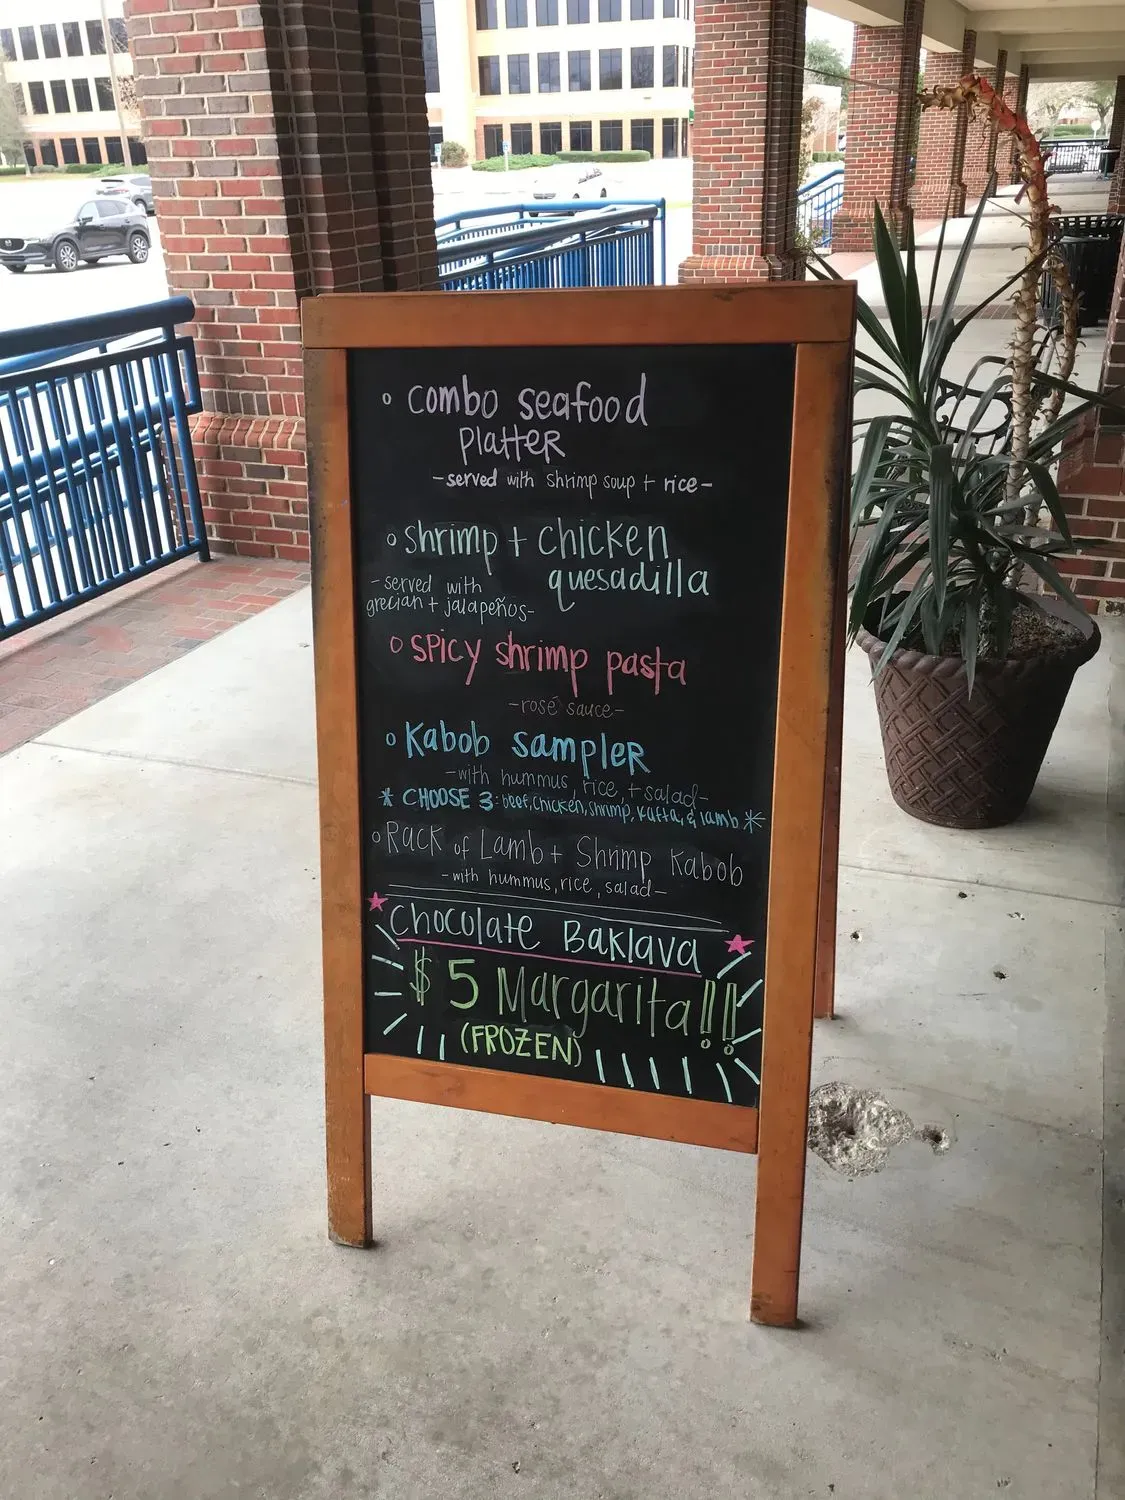 combo seafood
platter
-served with shrimp soup + rice-
shrimp + chicken
quesadilla
-served with
grecian + jalapeños-
spicy shrimp pasta
-rosé sauce-
Kabob sampler
-with hummus, rice, + salad-
* CHOOSE 3: beef, chicken, shrimp, kafta, & lamb *
Rack of Lamb + Shrimp Kabob
-with hummus, rice, salad-
Chocolate Baklava
$5 Margarita!!
(FROZEN)